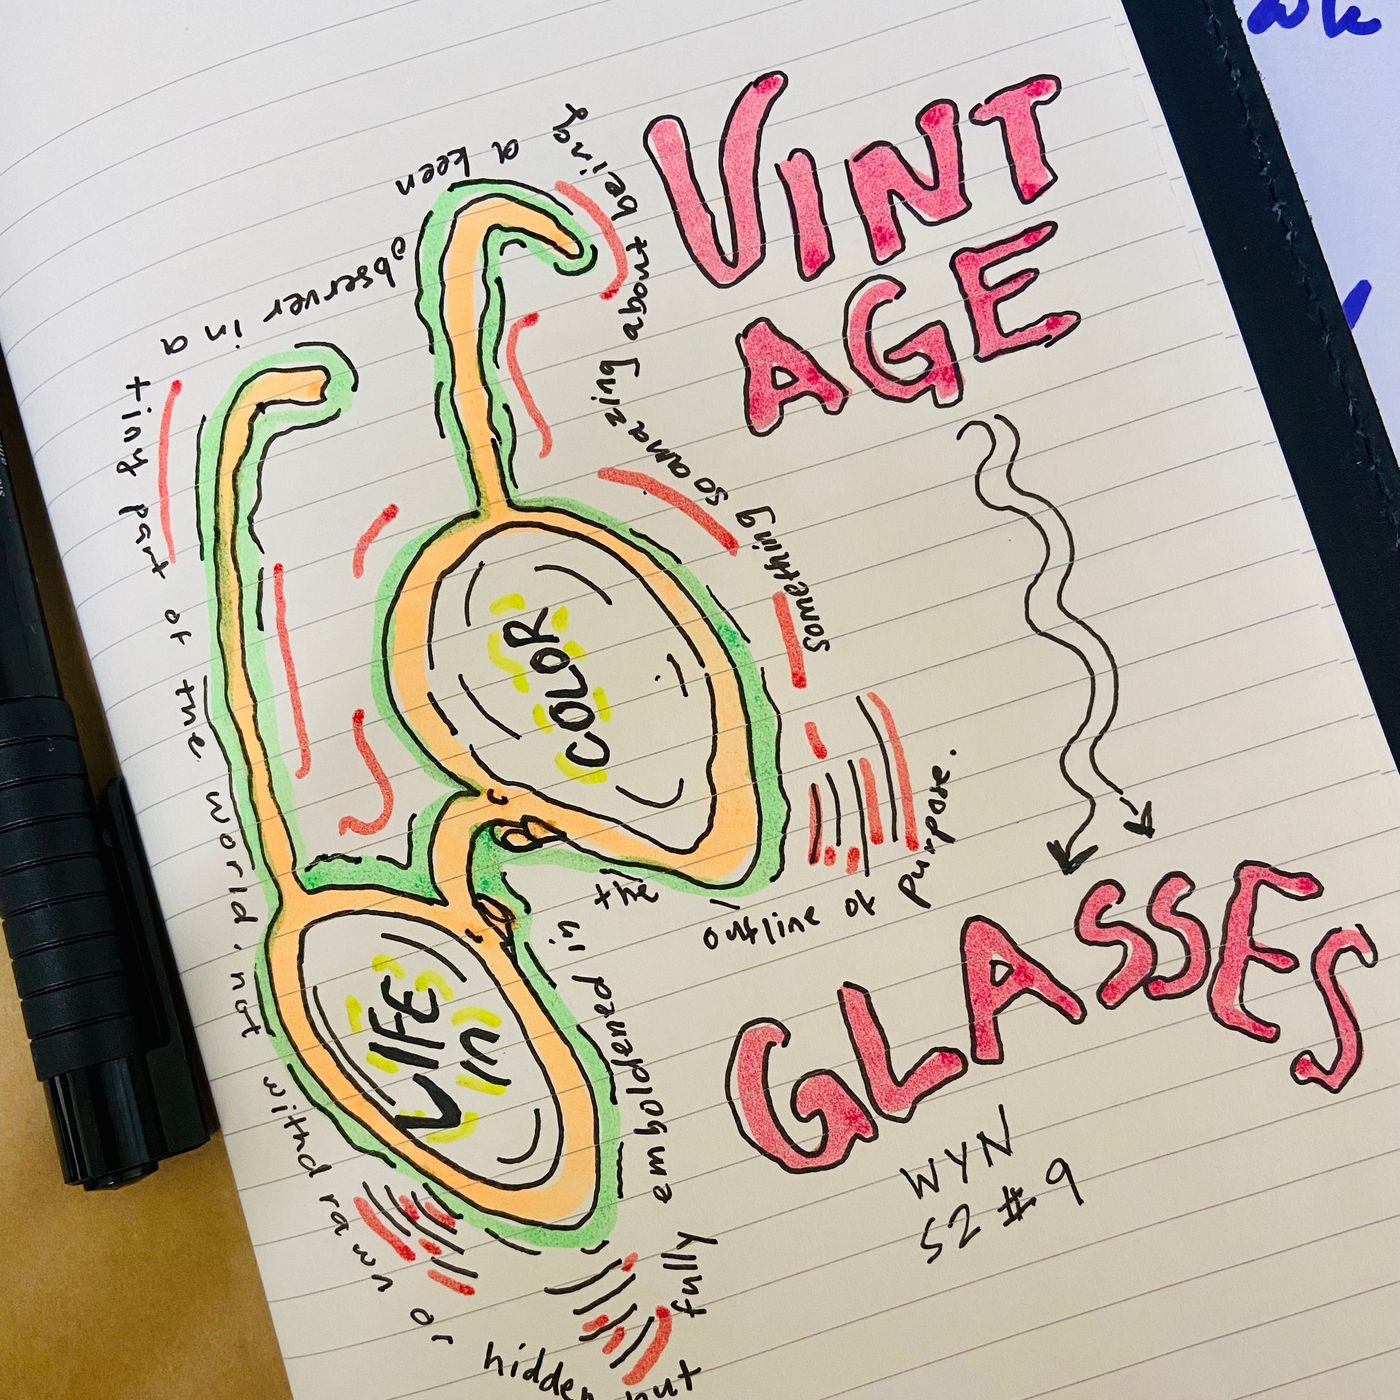 VINT
AGE
GLASSES
WYN
S2 #9
COLOR
LIFE
in
something so amazing about being
a keen
observer in a
tiny part of the world, not
withdrawn or hidden but
fully
emboldened in
the
outline of purpose.